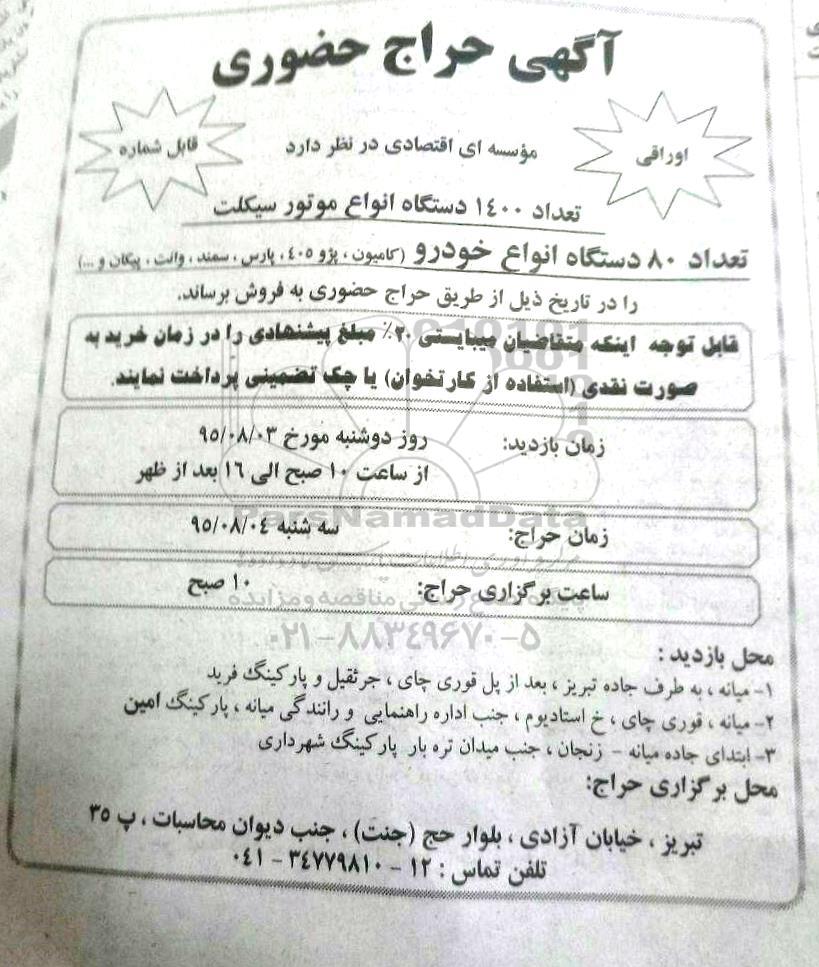 آگهی حراج حضوری
اوراقی
مؤسسه ای اقتصادی در نظر دارد
قابل شماره
تعداد ۱٤۰۰ دستگاه انواع موتور سیکلت
تعداد ۸۰ دستگاه انواع خودرو (کامیون ، پژو ٤۰۵ ، پارس ، سمند ، وانت ، پیکان و ...)
را در تاریخ ذیل از طریق حراج حضوری به فروش برساند.
قابل توجه اینکه متقاضیان میبایستی ۲۰٪ مبلغ پیشنهادی را در زمان خرید به
صورت نقدی (استفاده از کارتخوان) یا چک تضمینی پرداخت نمایند.
زمان بازدید: روز دوشنبه مورخ ۹۵/۰۸/۰۳
از ساعت ۱۰ صبح الی ۱٦ بعد از ظهر
زمان حراج: سه شنبه ۹۵/۰۸/۰٤
ساعت برگزاری حراج: ۱۰ صبح
ParsNamadData
پایگاه اطلاع رسانی مناقصه و مزایده
۰۲۱-۸۸۳۴۹۶۷۰-۵
محل بازدید :
۱- میانه ، به طرف جاده تبریز ، بعد از پل قوری چای ، جرثقیل و پارکینگ فرید
۲- میانه ، قوری چای ، خ استادیوم ، جنب اداره راهنمایی و رانندگی میانه ، پارکینگ امین
۳- ابتدای جاده میانه - زنجان ، جنب میدان تره بار پارکینگ شهرداری
محل برگزاری حراج:
تبریز ، خیابان آزادی ، بلوار حج (جنت) ، جنب دیوان محاسبات ، پ ۳۵
تلفن تماس : ۱۲ - ۳٤۷۷۹۸۱۰ - ۰٤۱